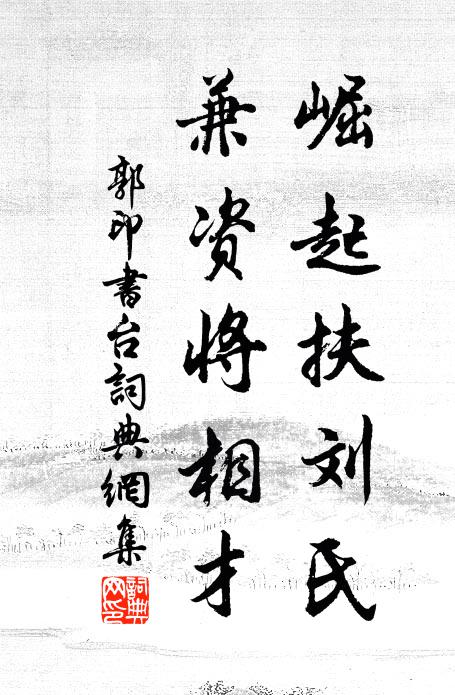 崛起扶刘氏
兼资将相才
郭印書台詞典網集
詞典网印